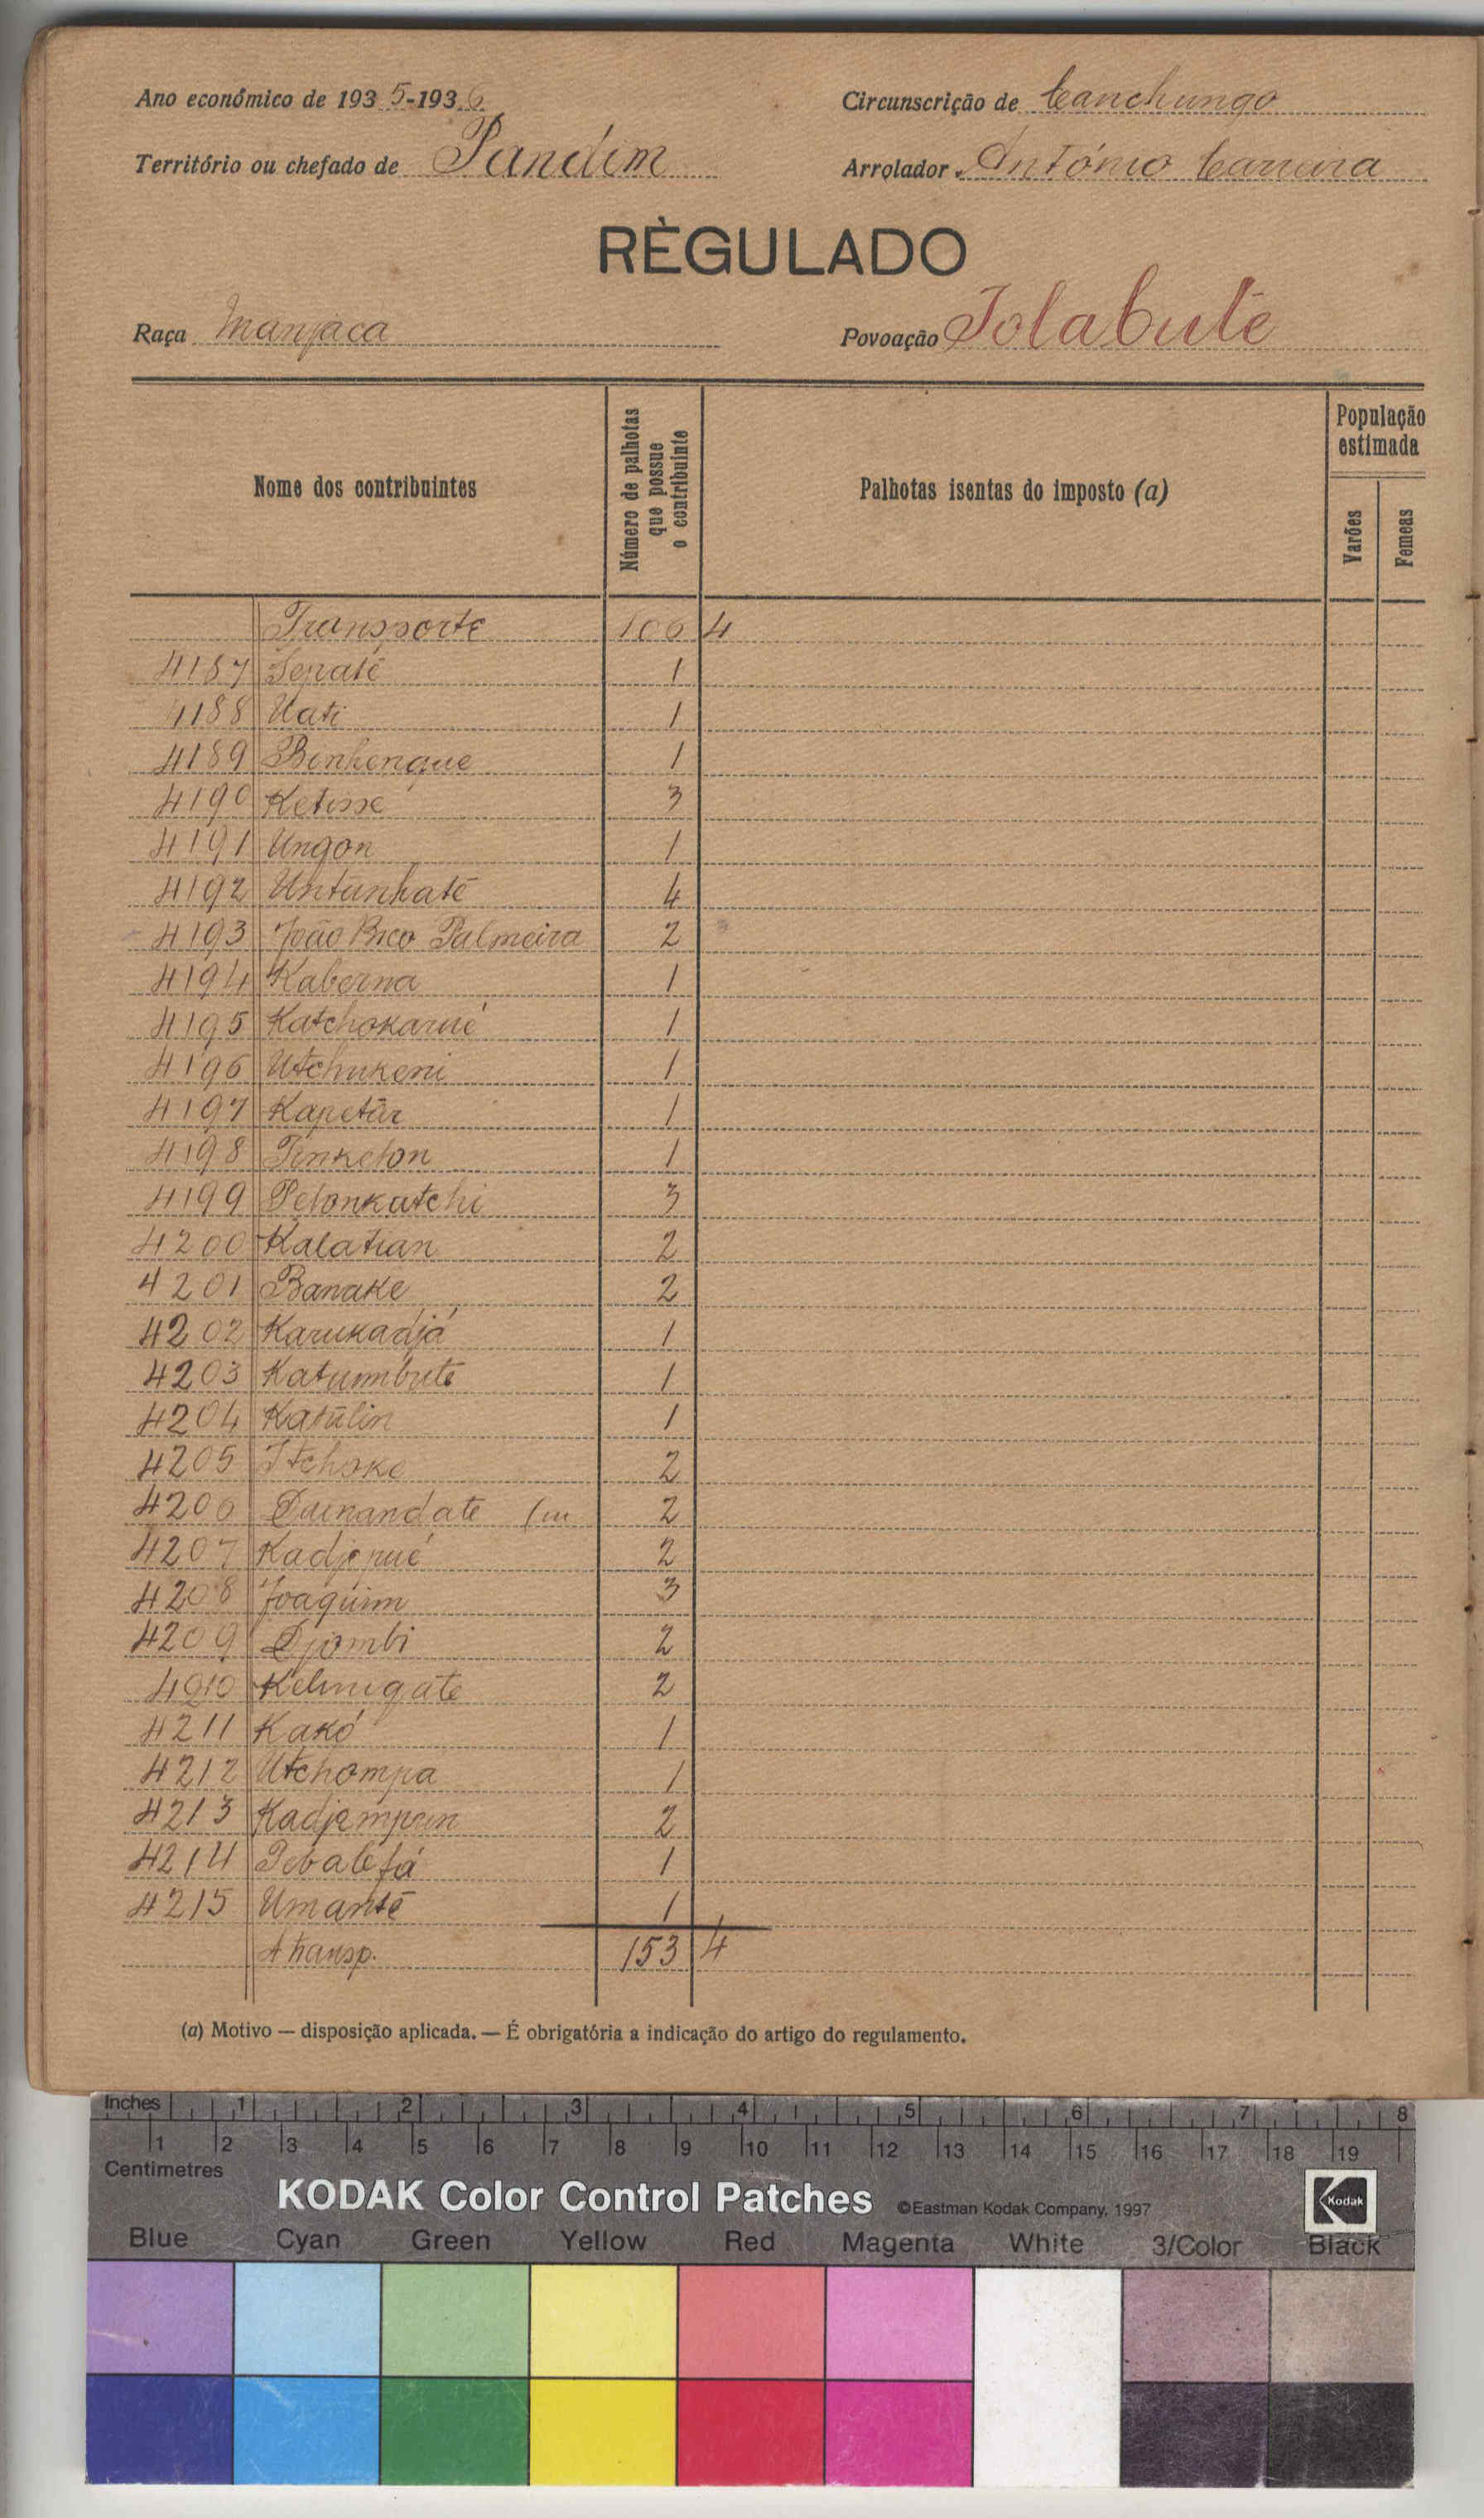 Ano económico de 1935-1936
Circunscrição de Canchungo
Território ou chefado de Pandim
Arrolador António Carreira
RÈGULADO
Raça Manjaca
Povoação Tolabute
Nome dos contribuintes
Número de palhotas que possue o contribuinte
Palhotas isentas do imposto (a)
População estimada
Varões
Femeas
Transporte 106 4
4187 1
4188 Uati 1
4189 Benhenque 1
4190 Ketisse 3
4191 Ungon 1
4192 Untunhatê 4
4193 João Bico Palmeira 2
4194 Kaberna 1
4195 Katchokarué 1
4196 Utchukeni 1
4197 Kapetãr 1
4198 1
4199 Petonkutchi 3
4200 Kalatian 2
4201 Banake 2
4202 Karukadjá 1
4203 Katumbute 1
4204 Katulin 1
4205 Itchoke 2
4206 2
4207 2
4208 Joaquim 3
4209 Djombi 2
4210 2
4211 Kakó 1
4212 Utchompa 1
4213 Kadjempan 2
4214 1
4215 Umantê 1
A transp. 153 4
(a) Motivo — disposição aplicada. — É obrigatória a indicação do artigo do regulamento.
Inches 1 2 3 4 5 6 7 8
1 2 3 4 5 6 7 8 9 10 11 12 13 14 15 16 17 18 19
Centimetres
KODAK Color Control Patches ©Eastman Kodak Company, 1997 Kodak
Blue Cyan Green Yellow Red Magenta White 3/Color Black